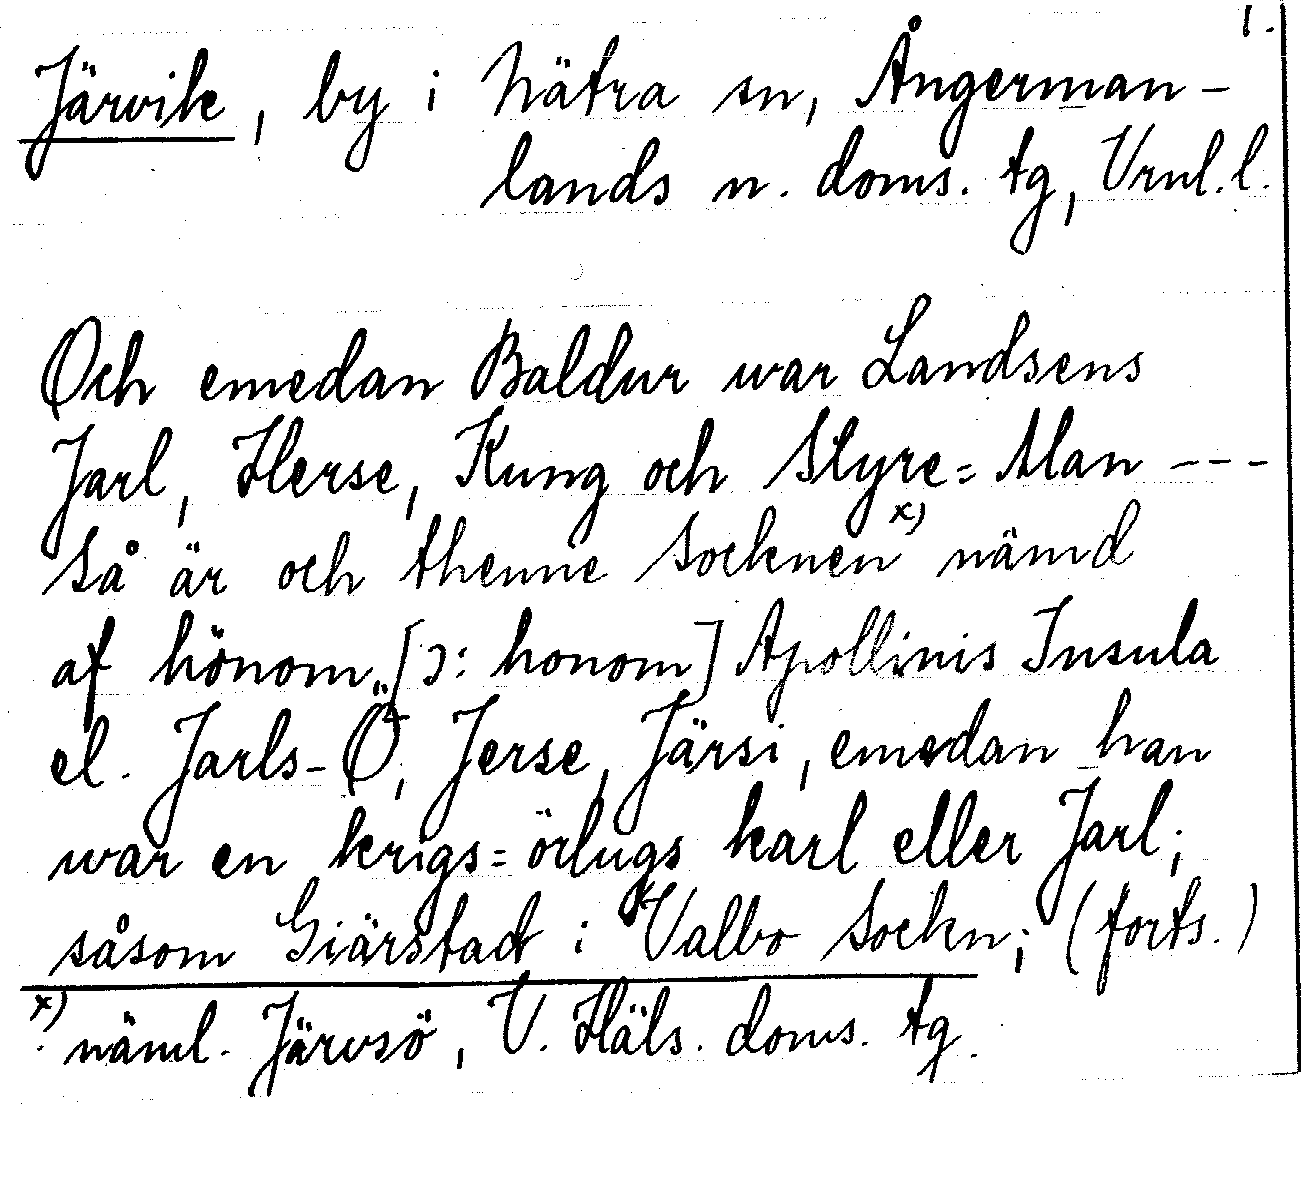 1.
Järvik, by i Nätra sn, Ångerman-
lands n. doms. tg, Vrnl. l.
Och emedan Baldur war Landsens
Jarl, Herse, Kung och Styre= Man ---
Så är och thenne Socknen x) nämd
af hönom [ɔ: honom] Apollinis Insula
el. Jarls-Ö, Jerse, Järsi, emedan han
war en krigs= örlugs karl eller Jarl;
såsom Giärstad i Valbo Sockn; (forts.)
x) näml. Järvsö, V. Häls. doms. tg.